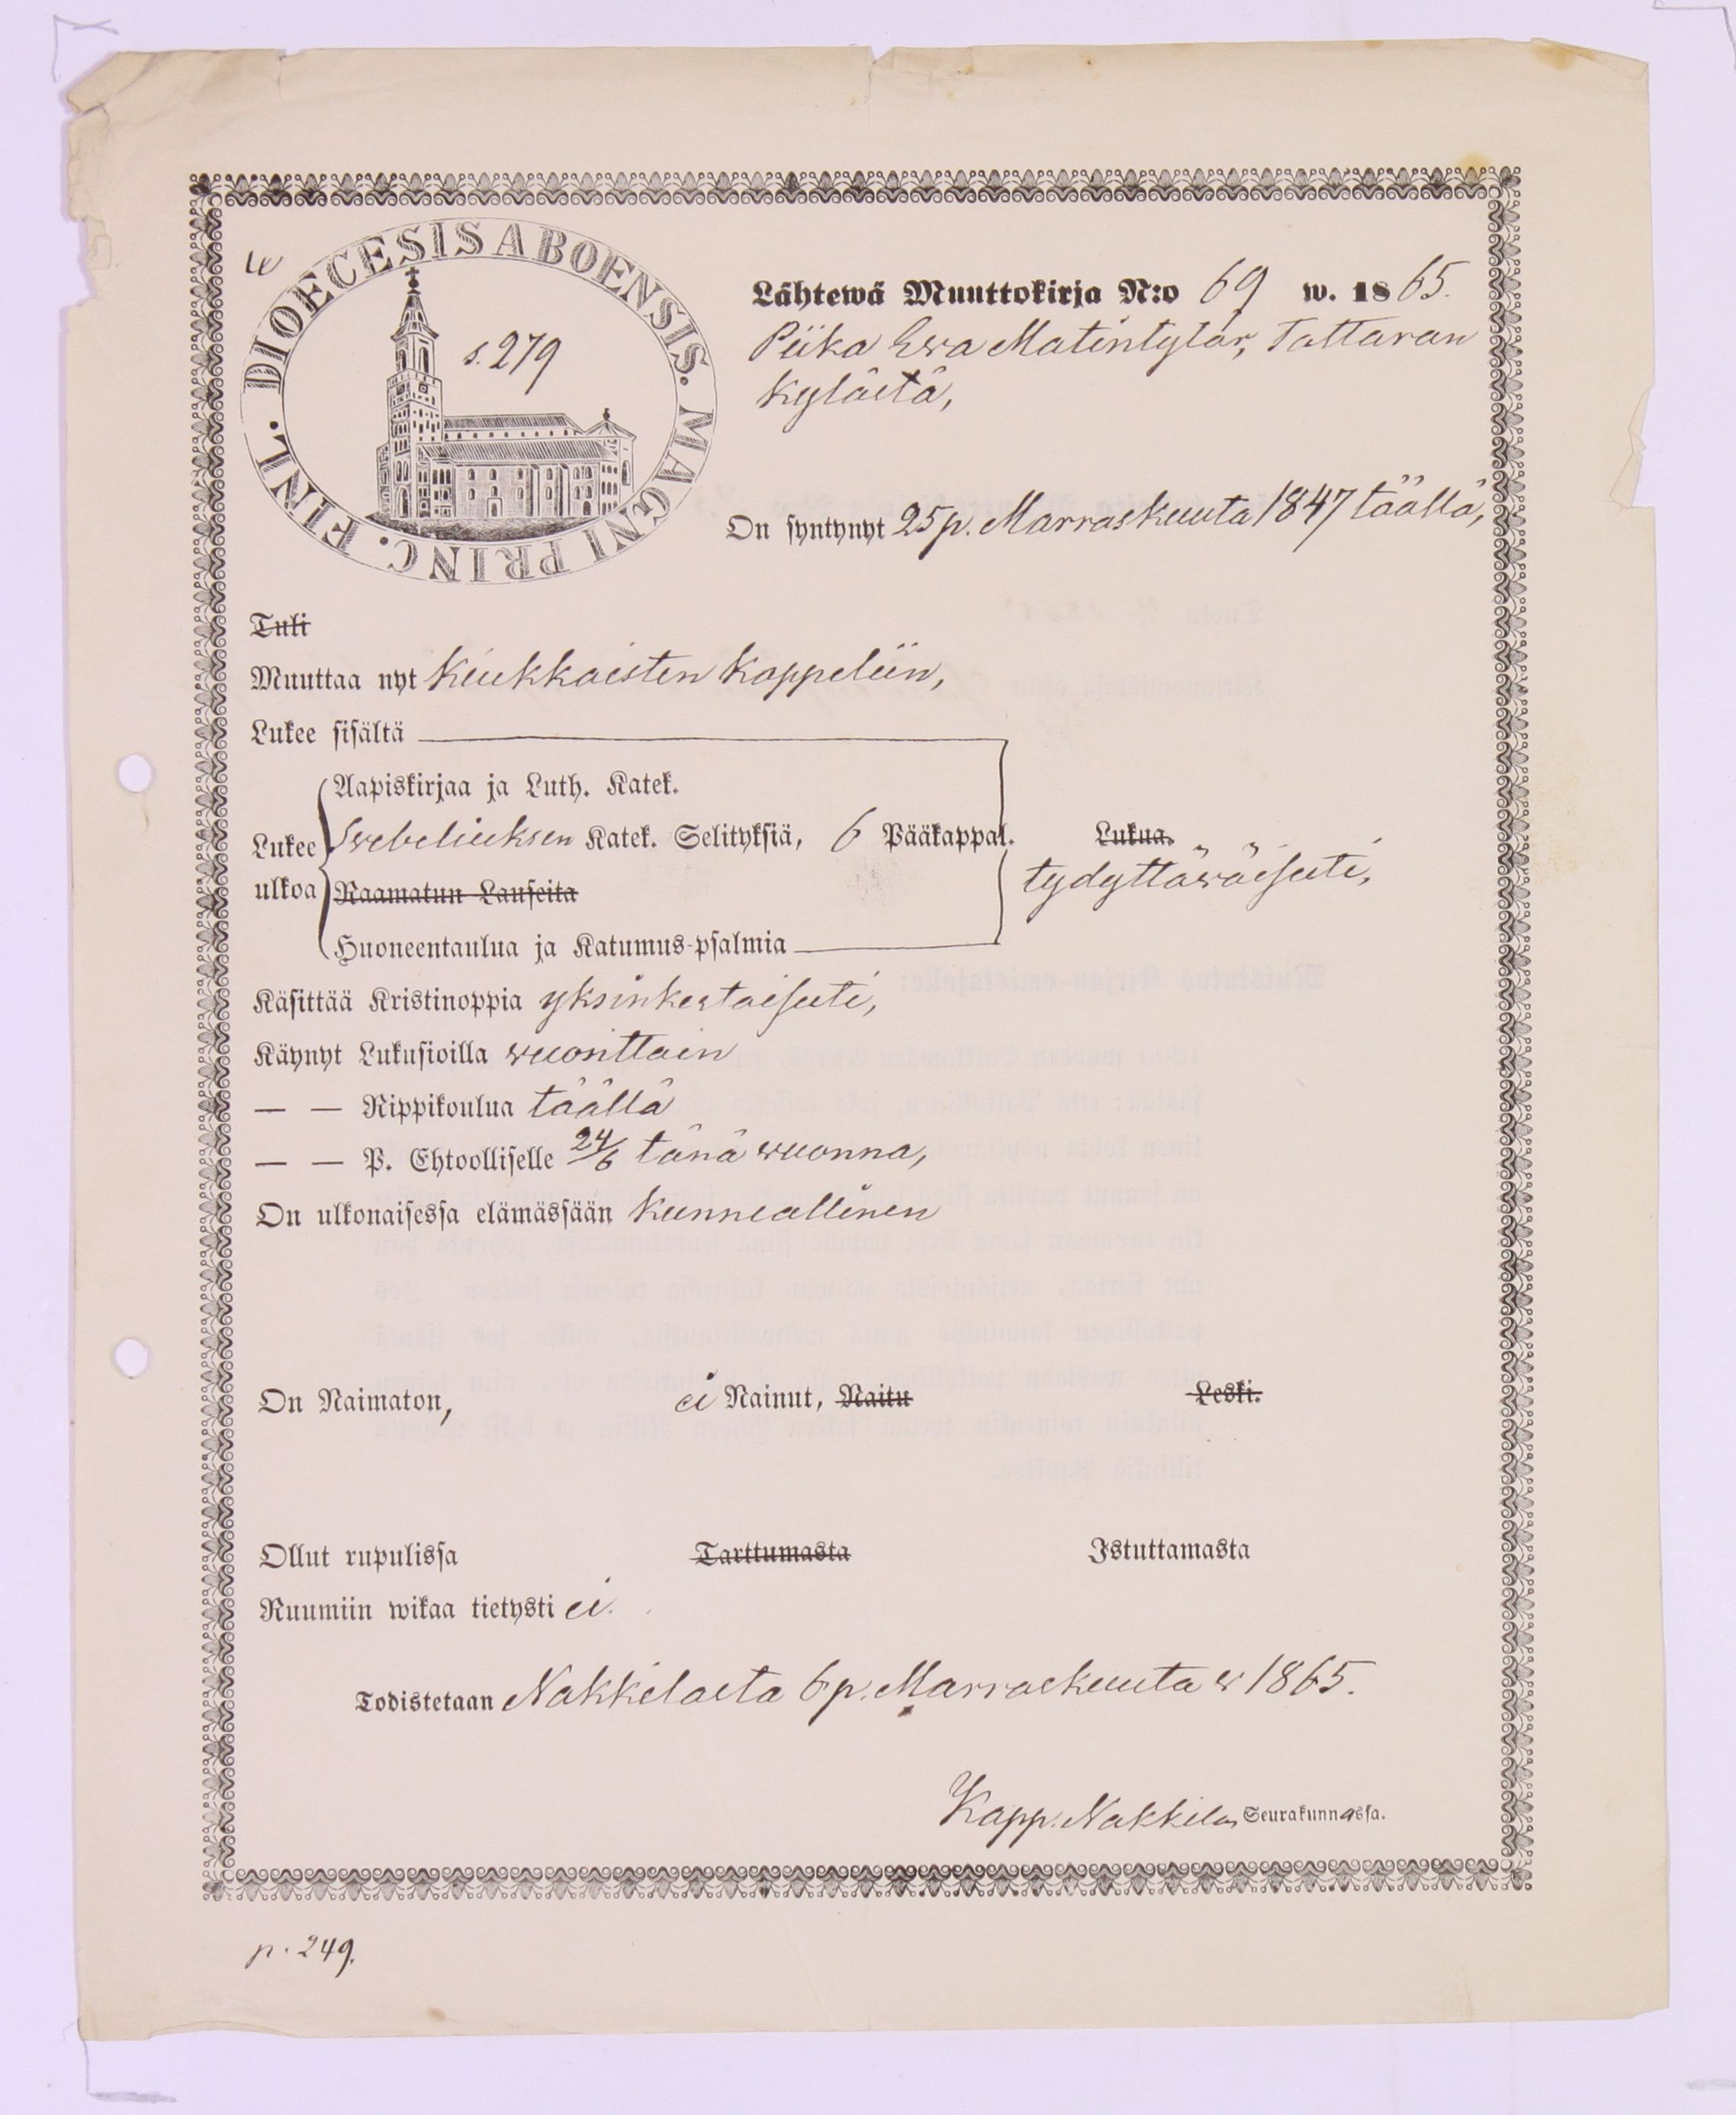 DIOECESIS ABOENSIS. MAGNI PRINC. FINL.
s. 279
Lähtewä Muuttokirja N:o 69 w. 1865.
Piika Ewa Matintytär, Tattaran
kylästä,
On syntynyt 25 p. Marraskuuta 1847 täällä,
Tuli
Muuttaa nyt Kiukkaisten Kappeliin,
Lukee sisältä
Aapiskirjaa ja Luth. Katek.
Lukee Swebeliuksen Katek. Selityksiä, 6 Pääkappal. Lukua.
ulkoa Raamatun Lauseita tydyttäwäisesti,
Huoneentaulua ja Katumus-psalmia
Käsittää Kristinoppia yksinkertaisesti,
Käynyt Lukusioilla wuosittain
— — Rippikoulua täällä
— — P. Ehtoolliselle 24/6 tänä wuonna,
On ulkonaisessa elämässään kunniallinen
On Naimaton, ei Nainut, Naitu Leski.
Ollut rupulissa Tarttumasta Istuttamasta
Ruumiin wikaa tietysti ei.
Todistetaan Nakkilasta 6 p. Marraskuuta w 1865.
Kapp. Nakkilan Seurakunnassa.
p. 249.